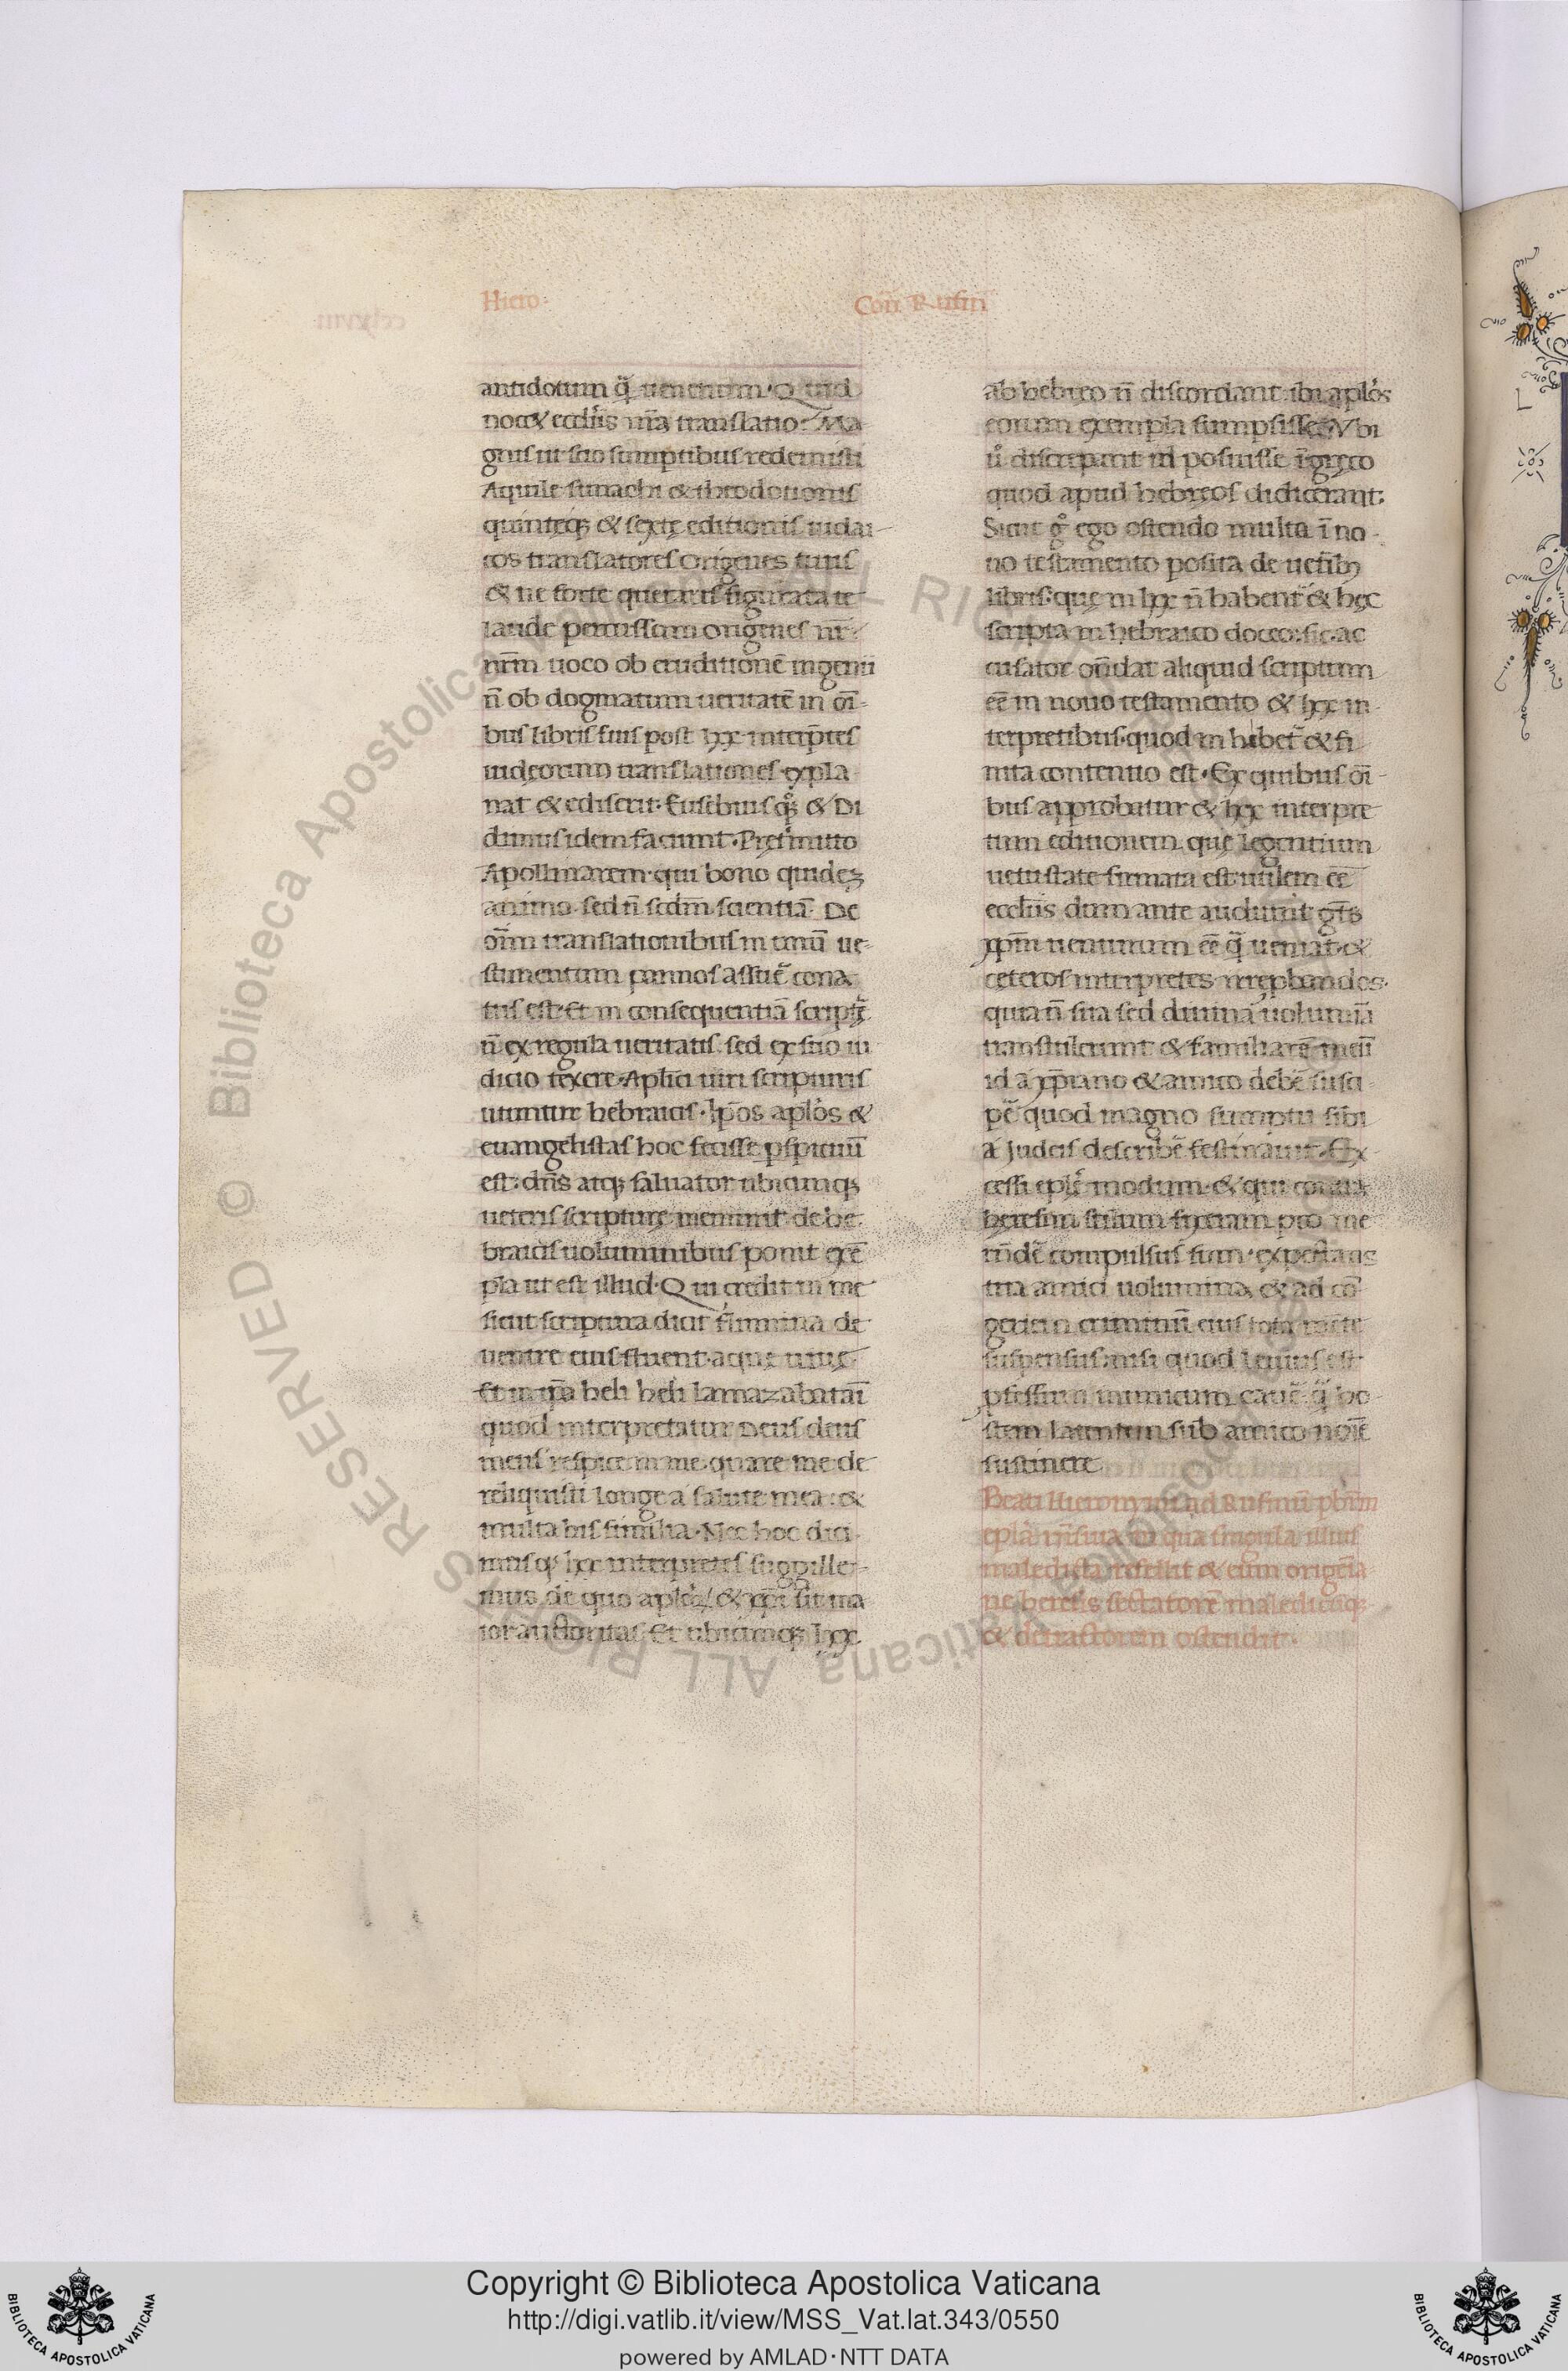 Hiero
Con̄ Rufin̄
antidotum q̄ uenenum. Quid
nocet eccl̄iis nr̄a translatio? Ma
gnis ut scio sumptibus redemisti
Aquile simachi & theodotionis
quinteq; & sexte editionis iudai
cos translatores Origenes tuus
& ne forte queraris figurata te
laude percussum origenes nr̄
nr̄m uoco ob eruditionē ingenii
n̄ ob dogmatum ueritatē in oī
bus libris suis post lxx interp̄tes
iudęorum translationes expla
nat & ediserit. Eusebiusq; & Di
dimus idem faciunt. Pretmitto
Apollinarem qui bono quidez
animo sed n̄ scdm̄ scientiā. De
oīm translationibus in unū ue
stimentum pannos assuē cona
tus est. Et in consequentiā script̄
n̄ ex regula ueritatis sed ex suo iu
dicio texere. Aplīci uiri scripturis
utuntur hebraicis. Ip̄os aplōs &
euangelistas hoc fecisse pspicuū
est. dn̄s atq; saluator ubicunq;
ueteris scripturę meminit de he
braicis uoluminibus ponit exē
pla ut est illud. Qui credit in me
sicut scriptura dicit flumina de
uentre eius fluent aquę uiuę
heli heli lamazabatani
quod interpretatur Deus deus
meus respice in me quare me de
reliquisti longe a salute mea: &
multa his similia. Nec hoc dici
mus q; lxx interpretes suggille
mus de quo aplōꝝ & xp̄i sit ma
ior auctoritas. Et ubicunq; lxx
ab hebreo n̄ discordant ibi aplōs
eorum exempla sumpsisse. Vbi
u̓ discrepant id posuisse ī gręco
quod apud hebręos didicerant.
Sicut g̊ ego ostendo multa ī no
uo testamento posita de uetīb;
libris. que in lxx n̄ habent̄ & hęc
scripta in hebraico doceo. sic ac
cusator on̄dat aliquid scriptum
eē in nouo testamento & lxx in
terpretibus. quod in hebet̄ & fi
nita contentio est. Ex quibus oī
bus approbatur & lxx interpre
tum editionem que legentium
uetustate firmata est utilem eē
eccliis dum ante audiunt gn̄ts
xp̄m uenturum eē q̄ ueniat. &
ceteros interpretes n̄ repbandos
quia n̄ sua sed diuina uolumīa
transtulerunt & familiarē meū
id a xp̄iano & amico debē susci
pē quod magno sumptu sibi
a Judeis describē festinauit. Ex
cessi eple modum. & qui contra
heresim stilum fixeram pro me
rn̄dē compulsus sum. expectans
tua amici uolumina & ad cō
geriem criminū eius tota mēte
suspensus. nisi quod leuius est
pfessum inimicum cauē q̄ ho
stem latentem sub amico noīē
sustinere.
Beati Hieronymi ad Rufinū pb̄rm
ep̄la rn̄siua in qua singula illius
maledicta refellit & eum origēia
ne heresis sectatorē maledicūq;
& detractorem ostendit.
Copyright © Biblioteca Apostolica Vaticana
http://digi.vatlib.it/view/MSS_Vat.lat.343/0550
powered by AMLAD·NTT DATA
BIBLIOTECA APOSTOLICA VATICANA
BIBLIOTECA APOSTOLICA VATICANA